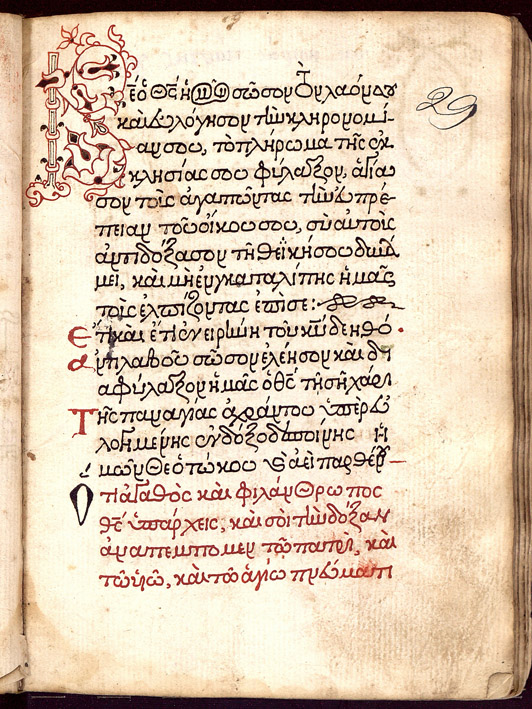 29
Κε ὁ Θς ἡμῶν σῶσον τὸν λαόν σου
καὶ εὐλόγησον τὴν κληρονομί-
αν σου, τὸ πλήρωμα τῆς ἐκ
κλησίας σου φύλαξον, ἁγία
σον τοὺς ἀγαπῶντας τὴν εὐπρέ-
πειαν τοῦ οἴκου σου, σὺ αὐτοὺς
ἀντιδόξασον τῇ θεϊκῇ σου δυνά
μει, καὶ μὴ ἐγκαταλίπῃς ἡμᾶς
τοὺς ἐλπίζοντας ἐπὶ σέ:
Ἔτι καὶ ἔτι ἐν εἰρήνῃ τοῦ κυ δεηθῶ.
ἀντιλαβοῦ σῶσον ἐλέησον καὶ δι
αφύλαξον ἡμᾶς ὁ θς τῇ σῇ χάρι
Τῆς παναγίας ἀχράντου ὑπερευ
λογημένης ἐνδόξου δεσποίνης ἡ
μῶν Θεοτόκου καὶ ἀειπαρθέν
Ὅτι ἀγαθὸς καὶ φιλάνθρωπος
θς ὑπάρχεις, καὶ σοὶ τὴν δόξαν
ἀναπέμπομεν τῷ πατρὶ, καὶ
τῷ υἱῷ, καὶ τῷ ἁγίῳ πνεύματι